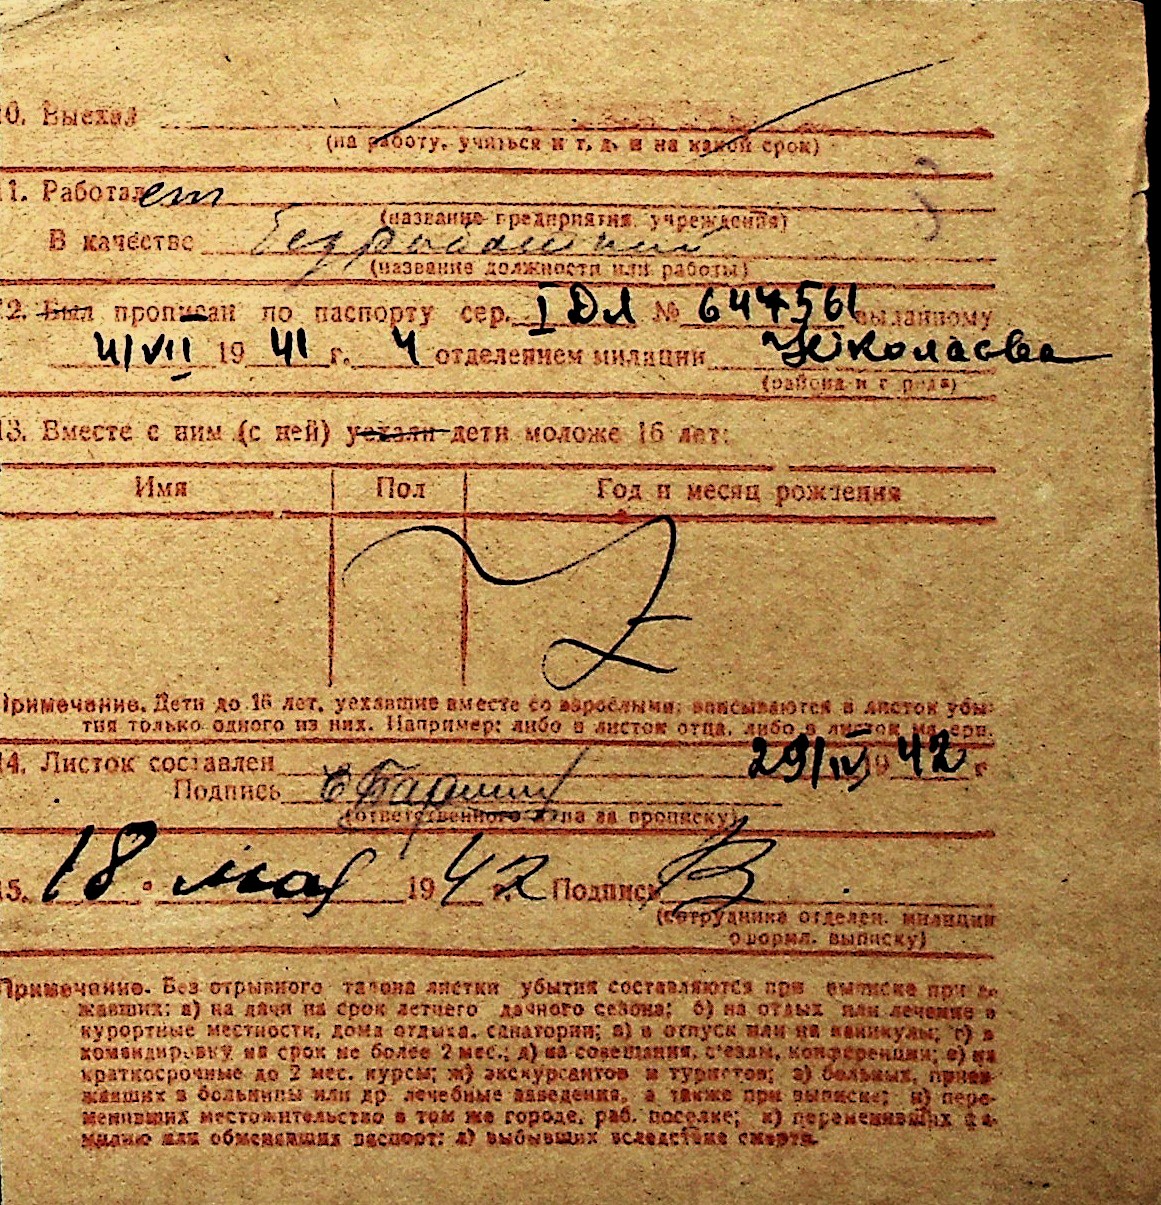 10. Выехал
(на работу, учиться и т. д. и на какой срок)
11. Работает
(название предприятия, учреждения)
В качестве
(название должности или работы)
12. Был прописан по паспорту сер. I ДЛ № 644561 выданному
4/VII 1941 г. 4 отделением милиции Николаева
(района и города)
13. Вместе с ним (с ней) уехали дети моложе 16 лет:
Имя Пол Год и месяц рождения
Примечание. Дети до 16 лет, уехавшие вместе со взрослыми, вписываются в листок убы-
тия только одного из них. Например: либо в листок отца, либо в листок матери.
14. Листок составлен 29/IV 1942 г
Подпись
(ответственного лица за прописку)
15. 18 " мая 1942 г. Подпись
(сотрудника отделен. милиции
оформл. выписку)
Примечание. Без отрывного талона листки убытия составляются при выписке прие
жавших: а) на дачи на срок летнего дачного сезона; б) на отдых или лечение в
курортные местности, дома отдыха, санатории; в) в отпуск или на каникулы; г) в
командировку на срок не более 2 мес.; д) на совещания, съезды, конференции; е) на
краткосрочные до 2 мес. курсы; ж) экскурсантов и туристов; з) больных, приез-
жавших в больницы или др. лечебные заведения, а также при выписке; и) пере-
менивших местожительство в том же городе, раб. поселке; к) переменивших фа-
милию или обменявших паспорт; л) выбывших вследствие смерти.